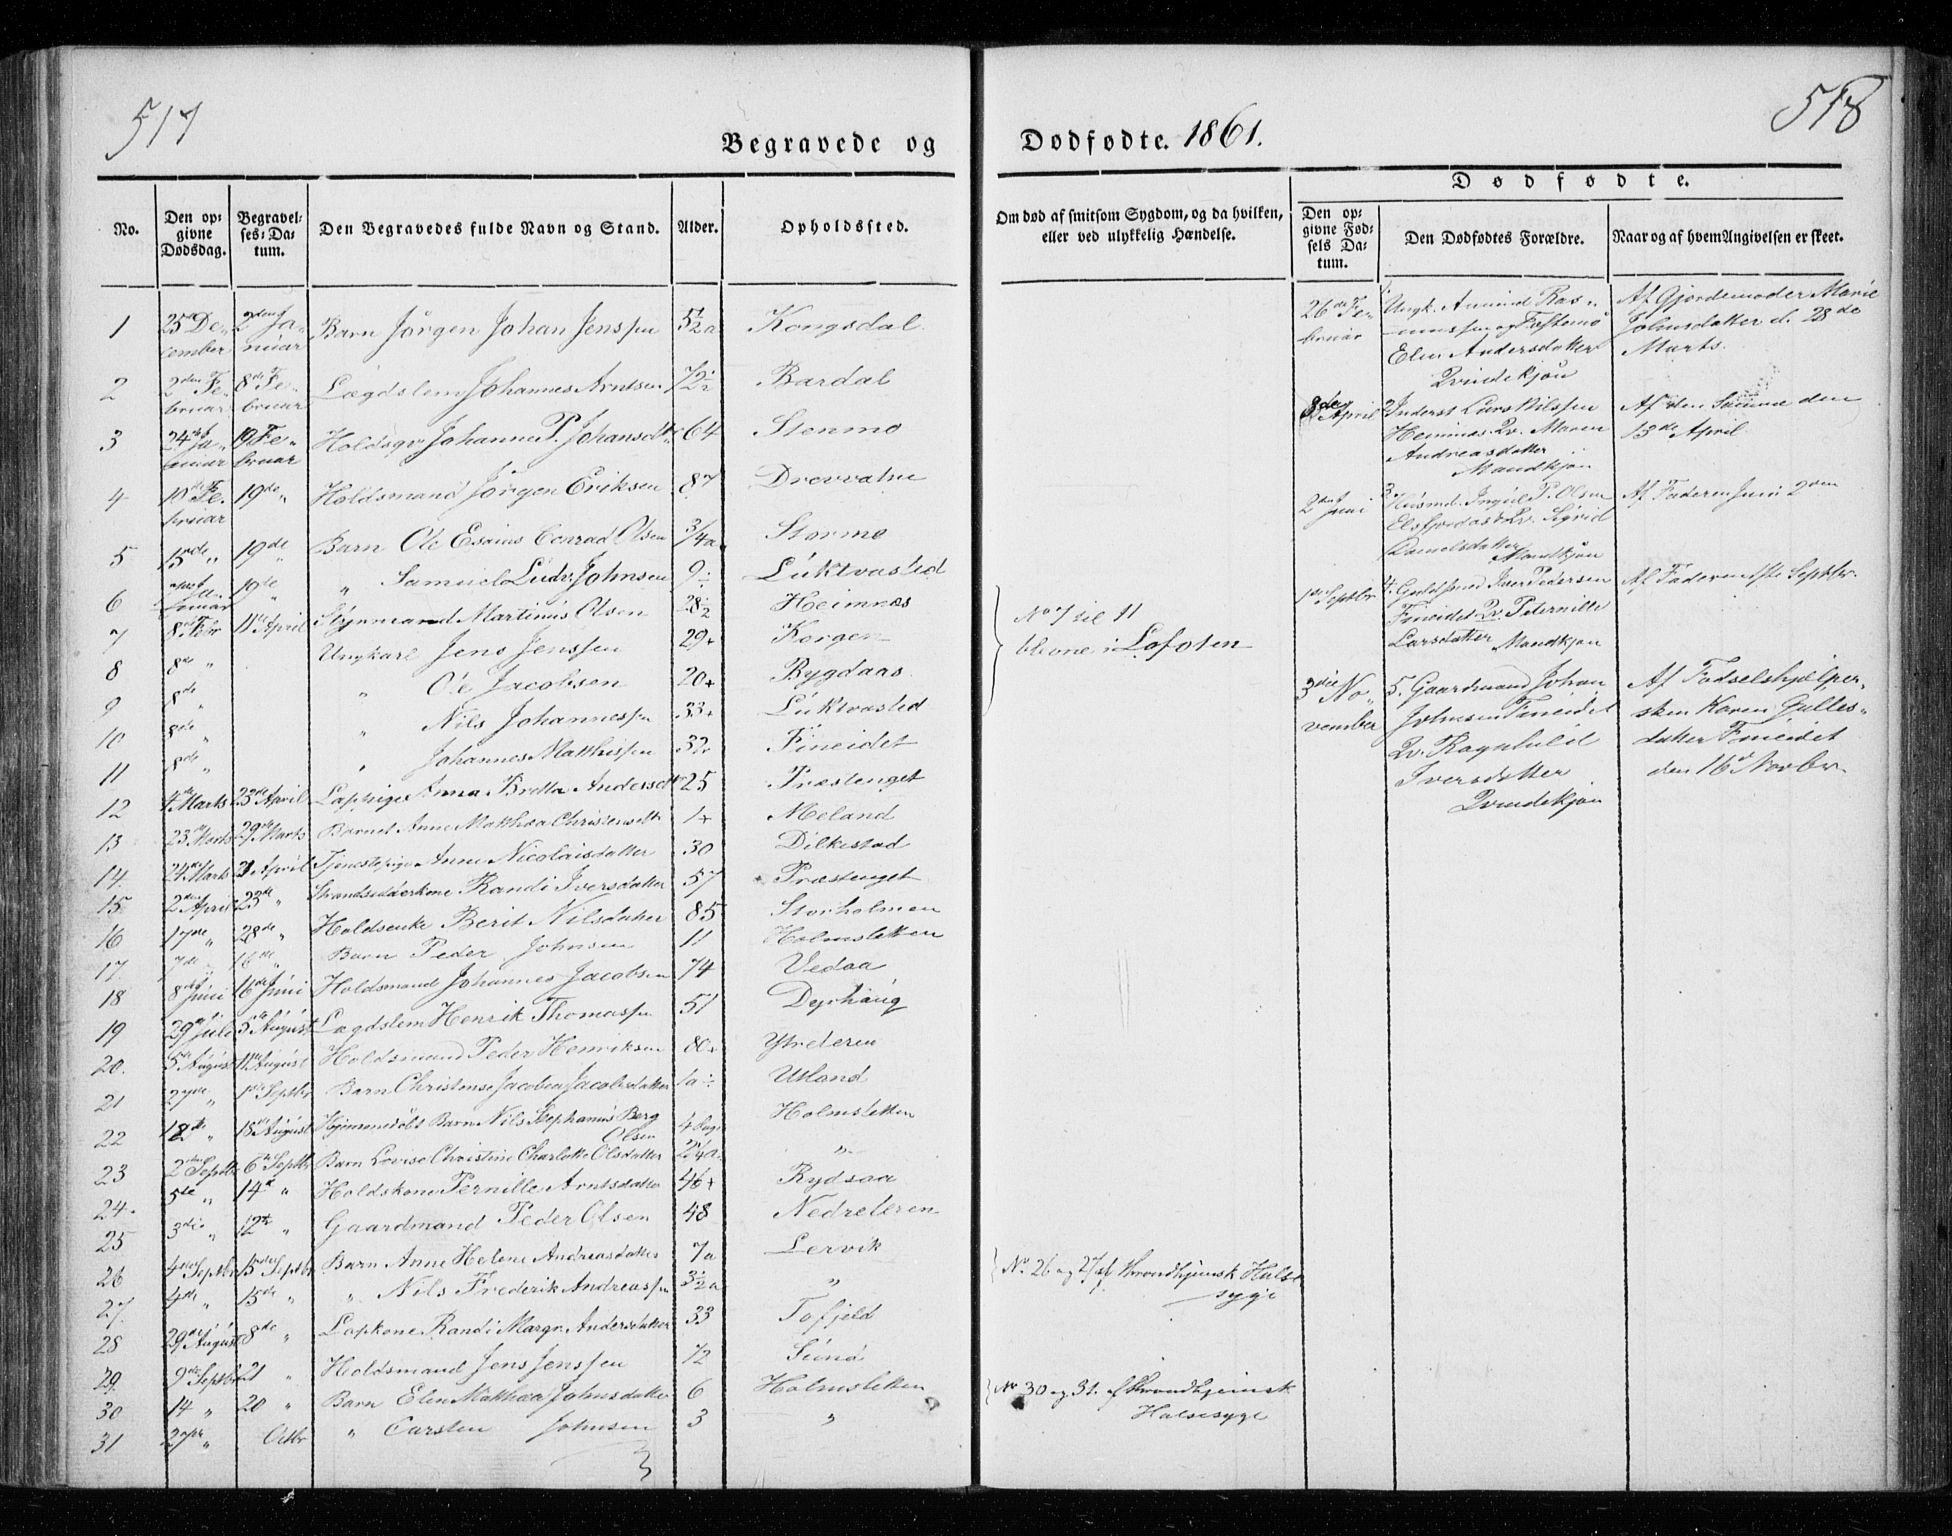 517
518
Begravede og Dødfødte. 1861.
Dødfødte.
No.
Den opgivne Dødsdag.
Begravelses-Datum.
Den Begravedes fulde Navn og Stand.
Alder.
Opholdssted.
Om død af smitsom Sygdom, og da hvilken, eller ved ulykkelig Hændelse.
Den opgivne Fødsels Datum.
Den Dødfødtes Forældre.
Naar og af hvem Angivelsen er skeet.
1 25de December 2den Januar Barn Jørgen Johan Jenssen 5½ a Kongsdal
2 2den Februar 8de Februar Lægdslem Johannes Arntsen 72½ Bardal
3 24de Januar 19 Februar Holdsqv Johanne P. Johansdtr 64 Stenmo
4 10de Februar 19de " Holdsmand Jørgen Eriksen 87 Drevvatne
5 15de " 19de " Barn Ole Esaias Conrad Olsen 3/4 a Stormo
6 19de " " Samuel Ludv. Johnsen 9 Luktvasled
7 8de Febr 11te April Martinus Olsen 28½ Heimnæs
8 8de " Ungkarl Jens Jenssen 29+ Korgen
9 8de " " Ole Jacobsen 20+ Bygdaas
10 8de " " Nils Johannessen 33+ Luktvasled
11 8de " " Johannes Matthissen 32 Fineidet
12 4de Marts 23de April Lappige Anna Bretta Andersdtr 25 Præstenget
13 23de Marts 29de Marts Barnet Anne Matthea Christensdtr 1+ Meland
14. 24de Marts 21 April Tjenestepige Anne Nicolaisdatter 30 Dilkestad
15 2den April 23de " Strandsidderkone Randi Iversdatter 57 Præstenget
16 17de " 28de " Holdsenke Berit Nilsdatter 85 Storholmen
17. 7de " 16de " Barn Peder Johnsen 11 Holmsletten
18 8de Juni 16de Juni Holdsmand Johannes Jacobsen 74 Vedaa
19 29de Juli 5te August Lægdslem Henrik Thomassen 51 Dyrhaug
20. 5te August 11te August Holdsmand Peder Henriksen 80+ Ytreleren
21 27de " 1ste Septbr Barn Christense Jacobea Jacobsdatter 1a Utland
22 18de " 18de August Hjemmedøbt Barn Nils Stephanus Berg Olsen 4 Dage Holmsletten
23 2den Septbr 6te Septbr Barn Lovise Christine Charlotte Olsdatter "
24. 5te " 14de " Holdskone Pernille Arntsdatter 46+ Rydsaa
25 3die " 12te " Gaardmand Peder Olsen 48 Nedreleren
26 4de Septbr 15de Septbr Barn Anne Helene Andreasdatter 7a Lervik
27. 4de " 15de " " Nils Frederik Andreassen 3½ a "
28 29de August 8de " Lapkone Randi Margr. Andersdatter 33 Tofjeld
29. 9de Septbr 21 " Holdsmand Jens Jenssen 72
30 14 " 20 " Barn Elen Matthea Johnsdatter 6 Holmsletten
31 27de " Octbr " Carsten Johnsen 3 "
No 7 til 11
blevne i Lofoten
No. 26 og 27 af throndhjemsk Halse
syge
No 30 og 31. af throndhjemsk
Halsesyge
26de Februar
1 Ungk. Amund Rasmussen og Fæstemø
Elen Andersdatter
Qvindekjøn
Af Gjordemoder Marie
Johnsdatter d. 28de
Marts.
8de April
2 Inderst Lars Nilssen
Heimnæs Qv. Maren
Andreasdatter
Mandkjøn
Af den Samme den
13de April.
2den Juni
3 Huusmd. Ingvel P. Olsen
Elsfjordas Qv. Sigrid
Danielsdatter
Mandkjøn
Af Faderen Juni 2den
1ste Septbr
4. Iver Pedersen
Fineidet Qv. Peternille
Larsdatter Mandkjøn
Af Faderen 1ste Septbr.
3die November
5. Gaardmand Johan
Johnsen Fineidet
Qv. Ragnhild
Iversdatter
Qvindekjøn
Af Fødselshjælpersken Karen Gullesdatter Fineidet
den 16 Novbr.